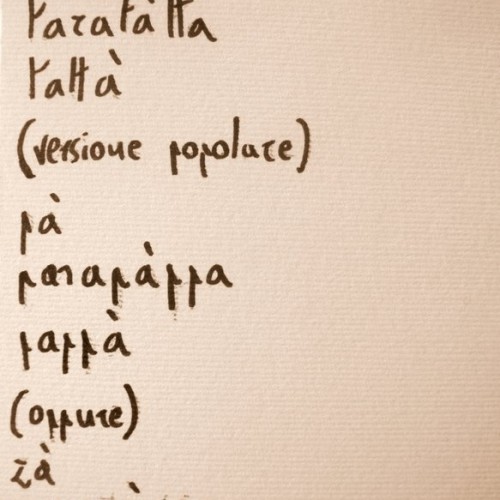 taratàtta
tattà
(versione popolare)
pà
parapàppa
pappà
(oppure)
zà